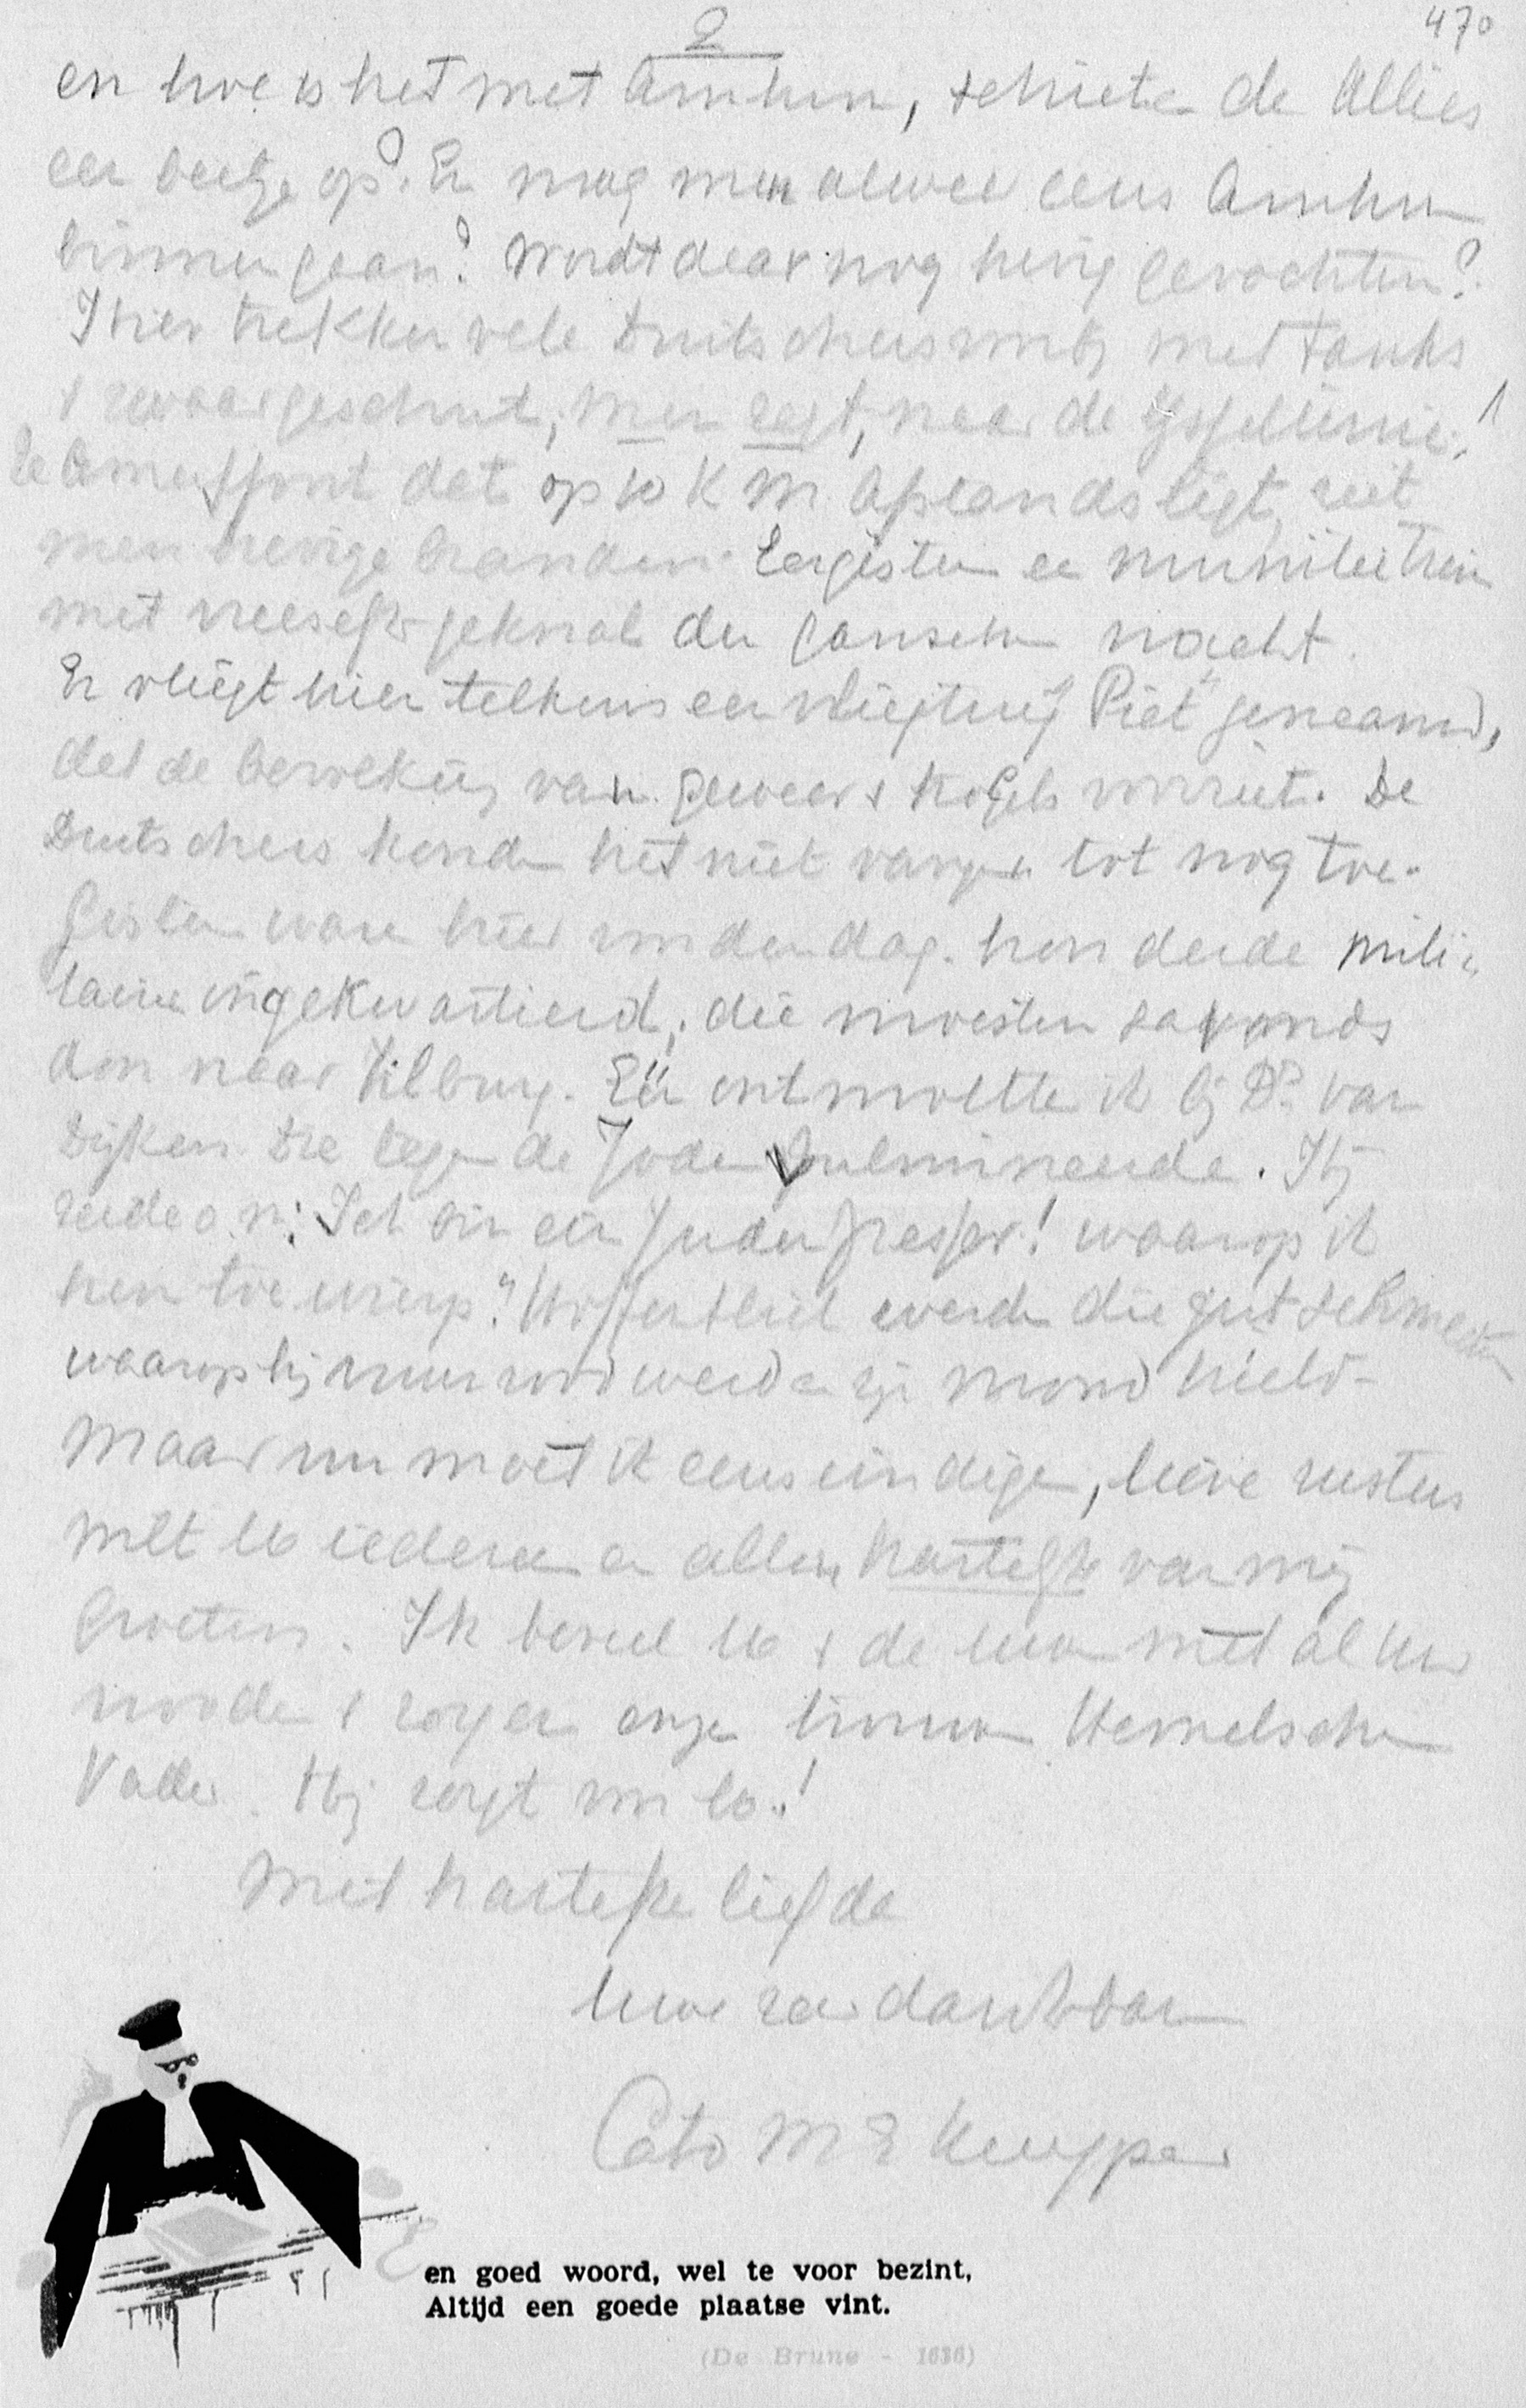 470
2
en hoe is het met Arnhem, schieten de Allies
een beetje op? En mag men alweer eens Arnhem
binnen gaan? Wordt daar nog hevig gevochten?
Hier trekken vele Duitschers voorbij met tanks
& zwaar geschut, men zegt, naar de IJssellinie!
Te Amersfoort dat op 10 KM. afstands ligt, ziet
men hevige branden. Eergisteren een munitietrein
met vreeselijk geknal den ganschen nacht.
Er vliegt hier telkens een vliegtuig "Piet" genaamd,
dat de bevolking van geweer & kogels voorziet. De
Duitschers konden het niet vangen tot nog toe.
Gisteren waren hier om den dag. honderde mili-
tairen ingekwartierd, die moesten savonds
don naar Tilburg. Eén ontmoette ik bij Ds. van
Dijken die tegen de Joden fulmineerde. Hij
zeide o.n.: Ich bin ein Judenfresser! waarop ik
hem toe wierp: "Hoffentlich werden die gut schmecken
waarop hij vuurrood werd en zijn mond hield -
Maar nu moet ik eens eindigen, lieve zusters
met U iedereen en allen hartelijk van mij
Groeten. Ik beveel U & de uwen met al uw
nooden & zorgen onzen trouwen Hemelschen
Vader. Hij zorgt voor U!
Met hartelijke liefde
Uwe zeer dankbare
Cato M E Kuyper
en goed woord, wel te voor bezint,
Altijd een goede plaatse vint.
(De Brune - 1636)